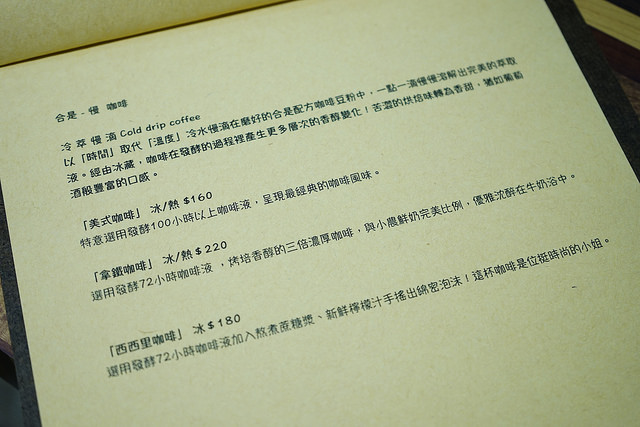 合是 - 慢 咖啡
冷 萃 慢 滴 Cold drip coffee
以「時間」取代「溫度」冷水慢滴在磨好的合是配方咖啡豆粉中，一點一滴慢慢溶解出完美的萃取
液。經由冰藏，咖啡在發酵的過程裡產生更多層次的香醇變化！苦澀的烘焙味轉為香甜，猶如葡萄
酒般豐富的口感。
「美式咖啡」 冰/熱 $160
特意選用發酵100小時以上咖啡液，呈現最經典的咖啡風味。
「拿鐵咖啡」 冰/熱 $220
選用發酵72小時咖啡液 ，烤培香醇的三倍濃厚咖啡，與小農鮮奶完美比例，優雅沈醉在牛奶浴中。
「西西里咖啡」 冰 $180
選用發酵72小時咖啡液加入熬煮蔗糖漿、新鮮檸檬汁手搖出綿密泡沫！這杯咖啡是位挺時尚的小姐。